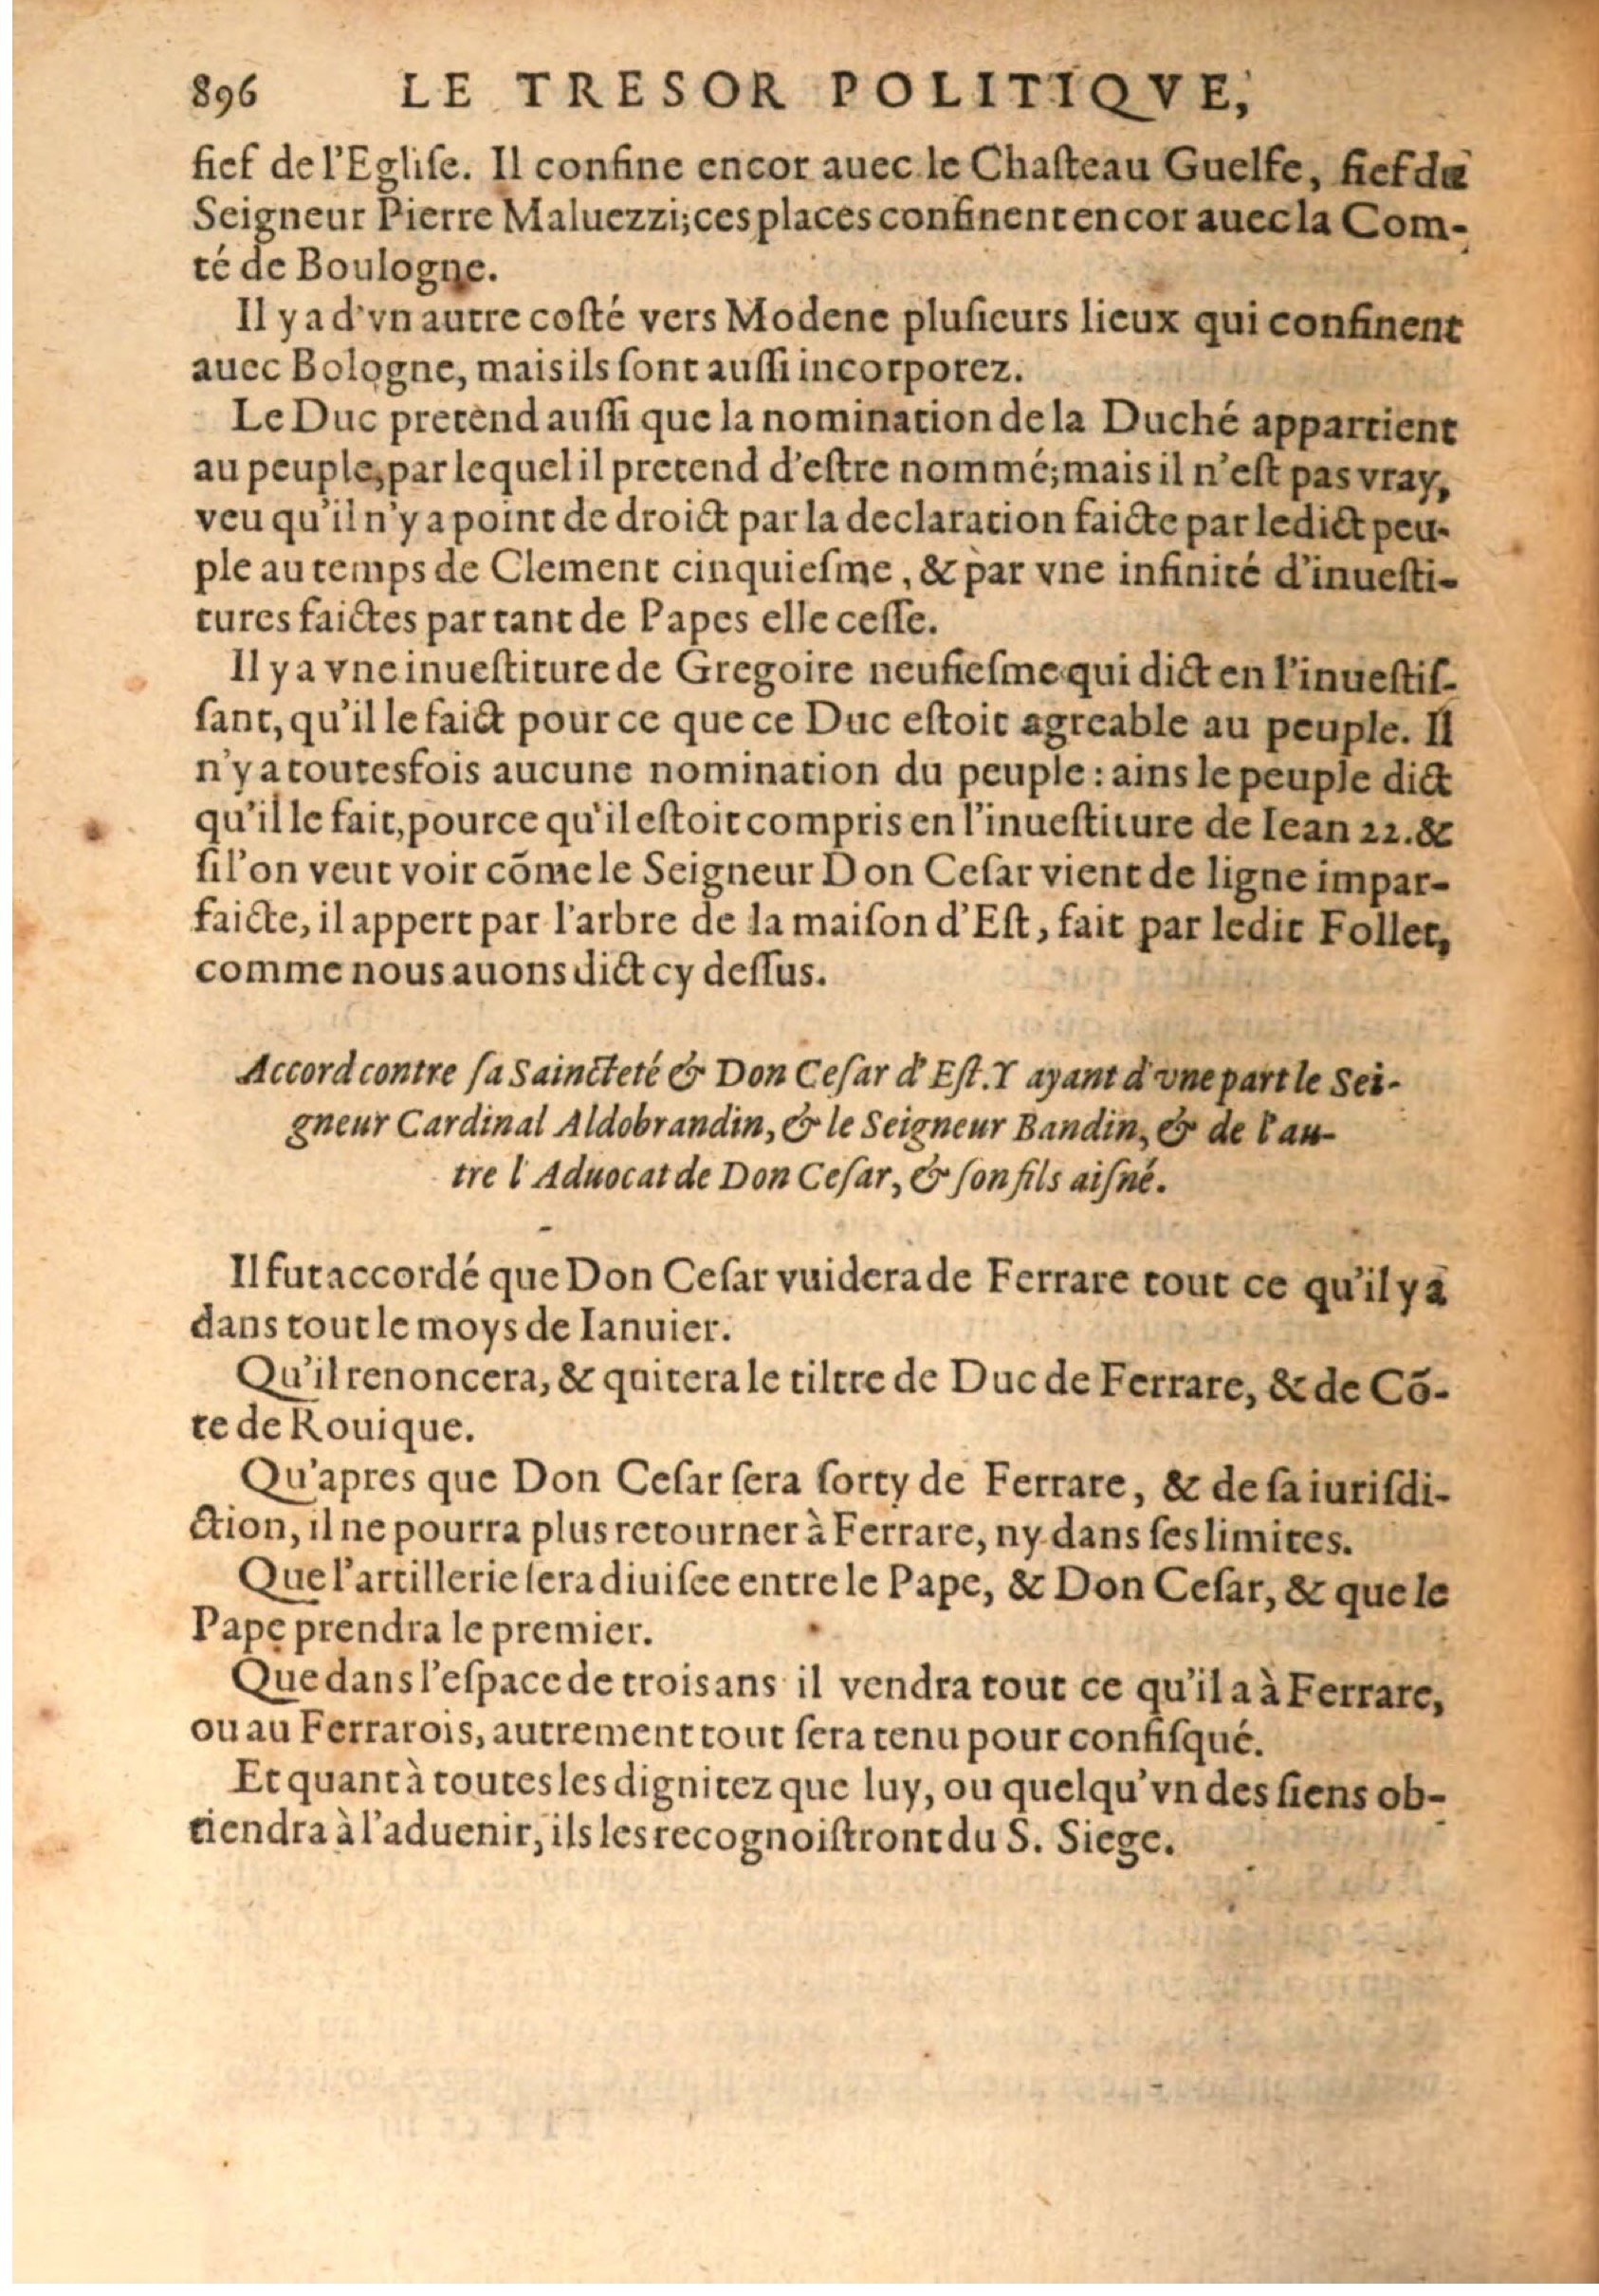 896 LE TRESOR POLITIQVE,
fief de l'Egliſe. Il confine encor auec le Chaſteau Guelfe, fief du
Seigneur Pierre Maluezzi; ces places confinent encor auec la Com-
té de Boulogne.
Il y a d'vn autre coſté vers Modene pluſieurs lieux qui confinent
auec Bologne, mais ils ſont auſſi incorporez.
Le Duc pretend auſſi que la nomination de la Duché appartient
au peuple, par lequel il pretend d'eſtre nommé; mais il n'eſt pas vray,
veu qu'il n'y a point de droict par la declaration faicte par ledict peu-
ple au temps de Clement cinquieſme, & par vne infinité d'inueſti-
tures faictes par tant de Papes elle ceſſe.
Il y a vne inueſtiture de Gregoire neufieſme qui dict en l'inueſtiſ-
ſant, qu'il le faict pour ce que ce Duc eſtoit agreable au peuple. Il
n'y a toutesfois aucune nomination du peuple: ains le peuple dict
qu'il le fait, pource qu'il eſtoit compris en l'inueſtiture de Iean 22. &
ſi l'on veut voir cõme le Seigneur Don Ceſar vient de ligne impar-
faicte, il appert par l'arbre de la maiſon d'Eſt, fait par ledit Follet,
comme nous auons dict cy deſſus.
Accord contre ſa Saincteté & Don Ceſar d'Eſt. Y ayant d'vne part le Sei-
gneur Cardinal Aldobrandin, & le Seigneur Bandin, & de l'au-
tre l'Aduocat de Don Ceſar, & ſon fils aiſné.
Il fut accordé que Don Ceſar vuidera de Ferrare tout ce qu'il y a
dans tout le moys de Ianuier.
Qu'il renoncera, & quitera le tiltre de Duc de Ferrare, & de Cõ-
te de Rouique.
Qu'apres que Don Ceſar ſera ſorty de Ferrare, & de ſa iuriſdi-
ction, il ne pourra plus retourner à Ferrare, ny dans ſes limites.
Que l'artillerie ſera diuiſee entre le Pape, & Don Ceſar, & que le
Pape prendra le premier.
Que dans l'eſpace de trois ans il vendra tout ce qu'il a à Ferrare,
ou au Ferrarois, autrement tout ſera tenu pour confiſqué.
Et quant à toutes les dignitez que luy, ou quelqu'vn des ſiens ob-
tiendra à l'aduenir, ils les recognoiſtront du S. Siege.